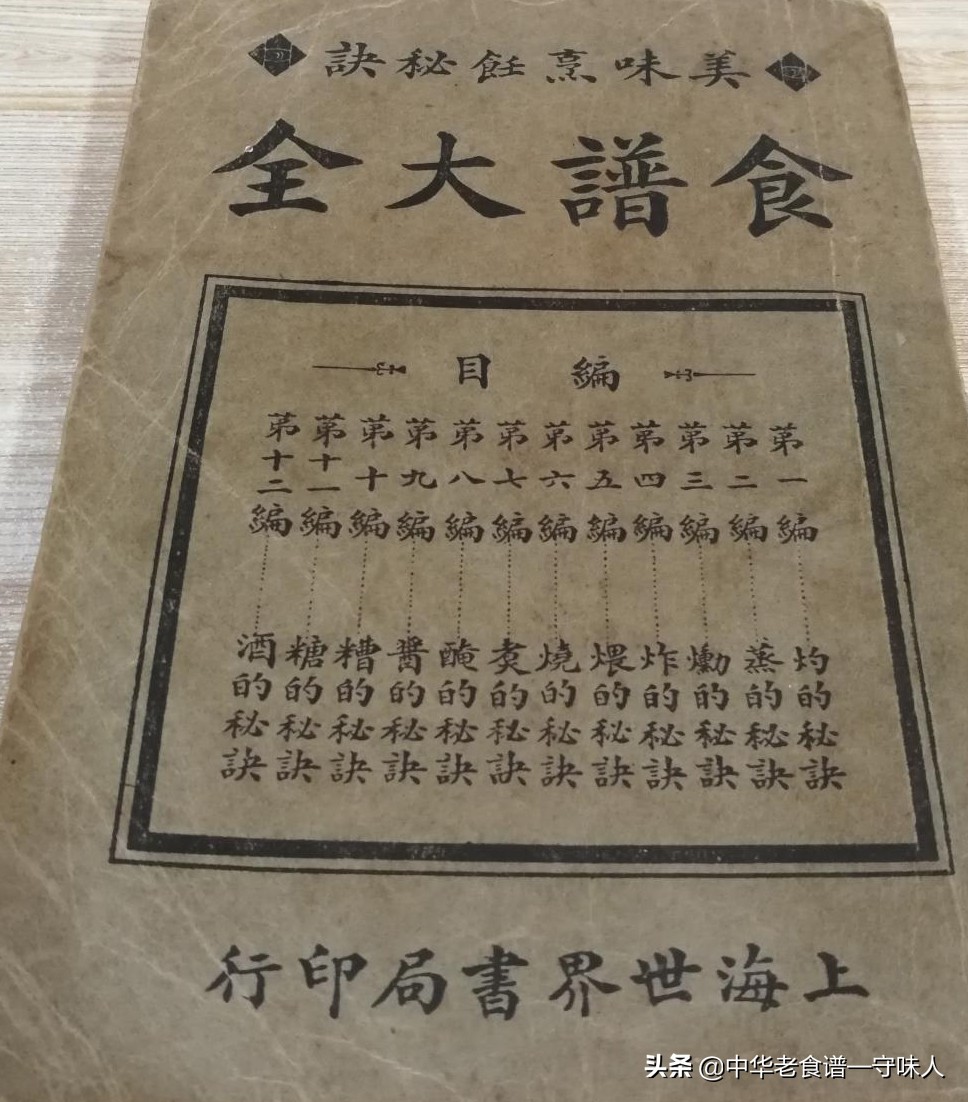 美味烹飪秘訣
食譜大全
編目
第一編 灼的秘訣
第二編 蒸的秘訣
第三編 的秘訣
第四編 炸的秘訣
第五編 煨的秘訣
第六編 燒的秘訣
第七編 炙的秘訣
第八編 醃的秘訣
第九編 醬的秘訣
第十編 糟的秘訣
第十一編 糖的秘訣
第十二編 酒的秘訣
上海世界書局印行
头条 @中华老食谱一守味人